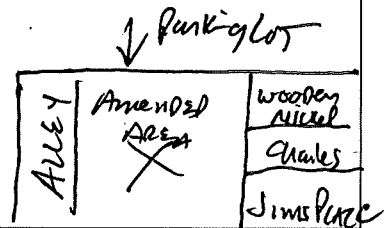 Parking Lot
ALLEY
AMENDED
AREA
WOODEN
Nickel
Charles
Jims PLACE